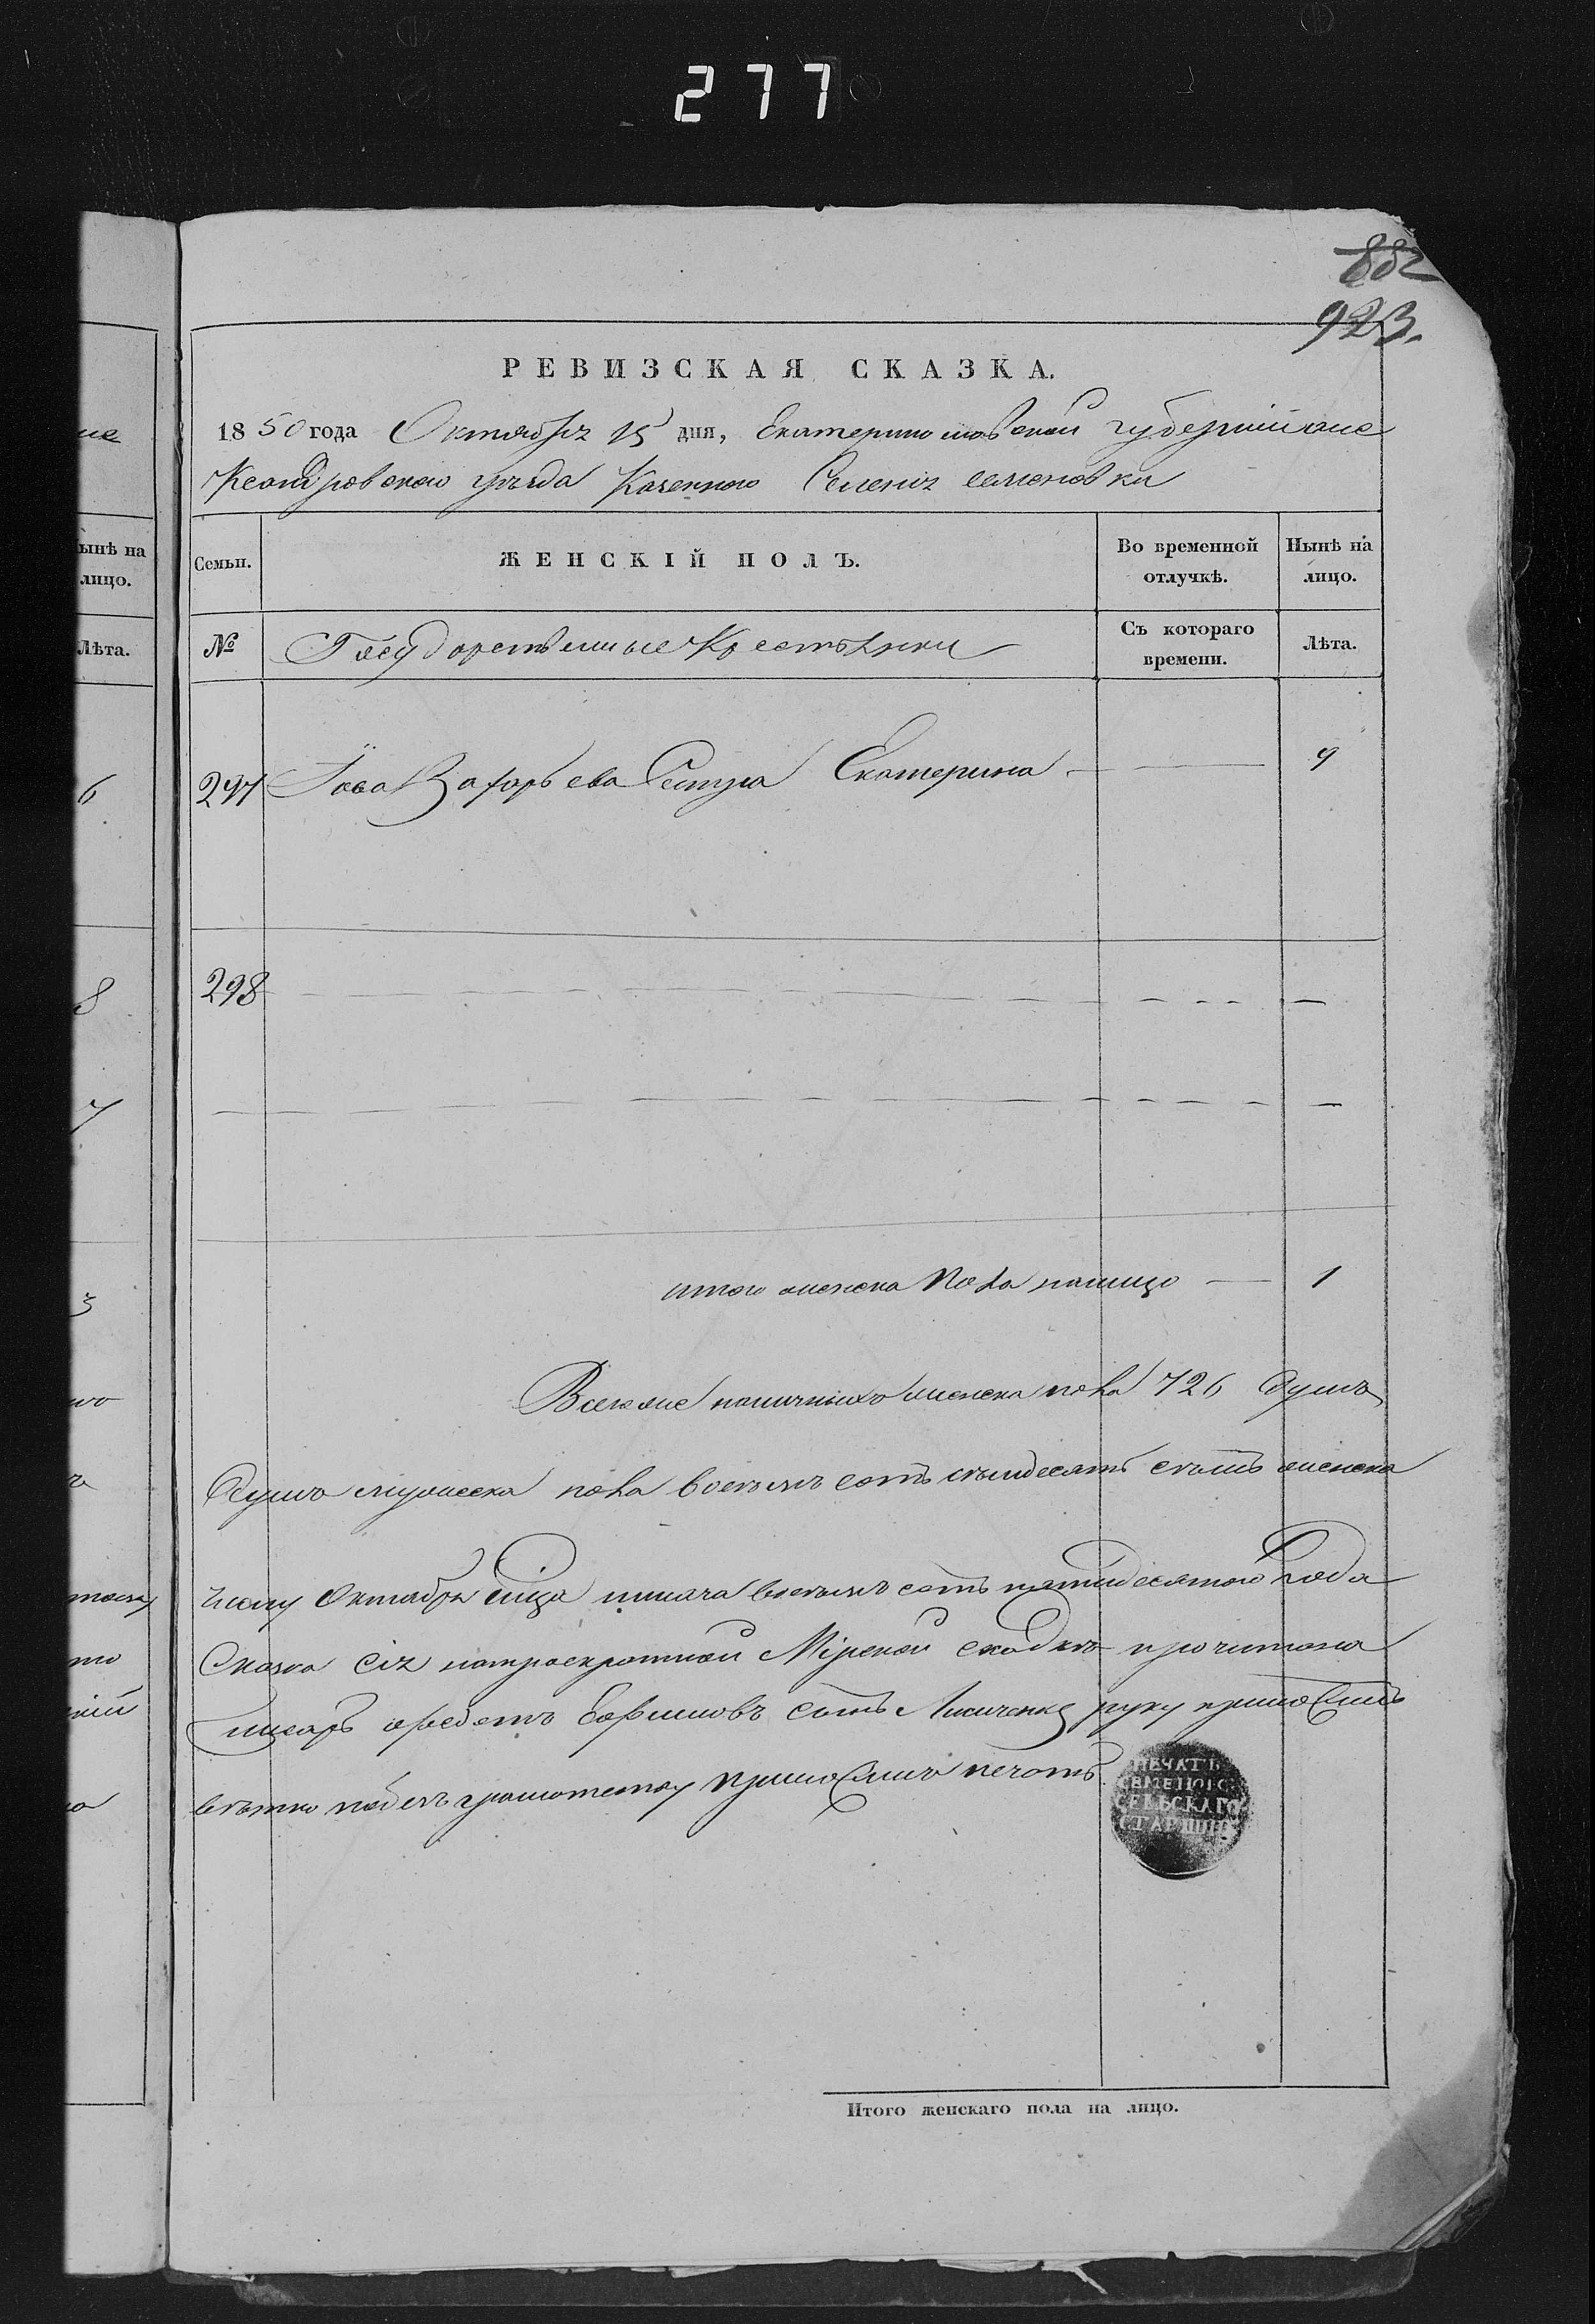 277
882
923.
РЕВИЗСКАЯ СКАЗКА.
1850 года Октября 15 дня, Екатеринославской губернiи Але
Ксандровского уезда Казенного Селения семеновки
Семьи.
ЖЕНСКIЙ ПОЛЪ.
Во временной отлучкѣ.
Нынѣ на лицо.
№
Государственные Крестьянки
Съ котораго времени.
Лѣта.
297 Iова Захарьева Сестра Екатерина — 9
298 — — —
итого женска пола налицо — 1
Всего же наличныхъ женска пола 726 душъ
Душъ мужеска пола восемь сотъ семдесятъ семь женска
числу Октября мца тысяча восемь сотъ пятидесятого Года
Сказка сiя на мiрской сходке прочитана
писарь сынъ Лисиченко руку приложилъ
неграмотству приложилъ печать
ПЕЧАТЬ
СЕМЕНОВС
СЕЛЬСКАГО
СТАРШИНЫ
Итого женскаго пола на лицо.
ынѣ на
лицо.
Лѣта.
6
8
7
3